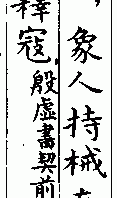 ，象人持械
釋寇，殷虛書契前